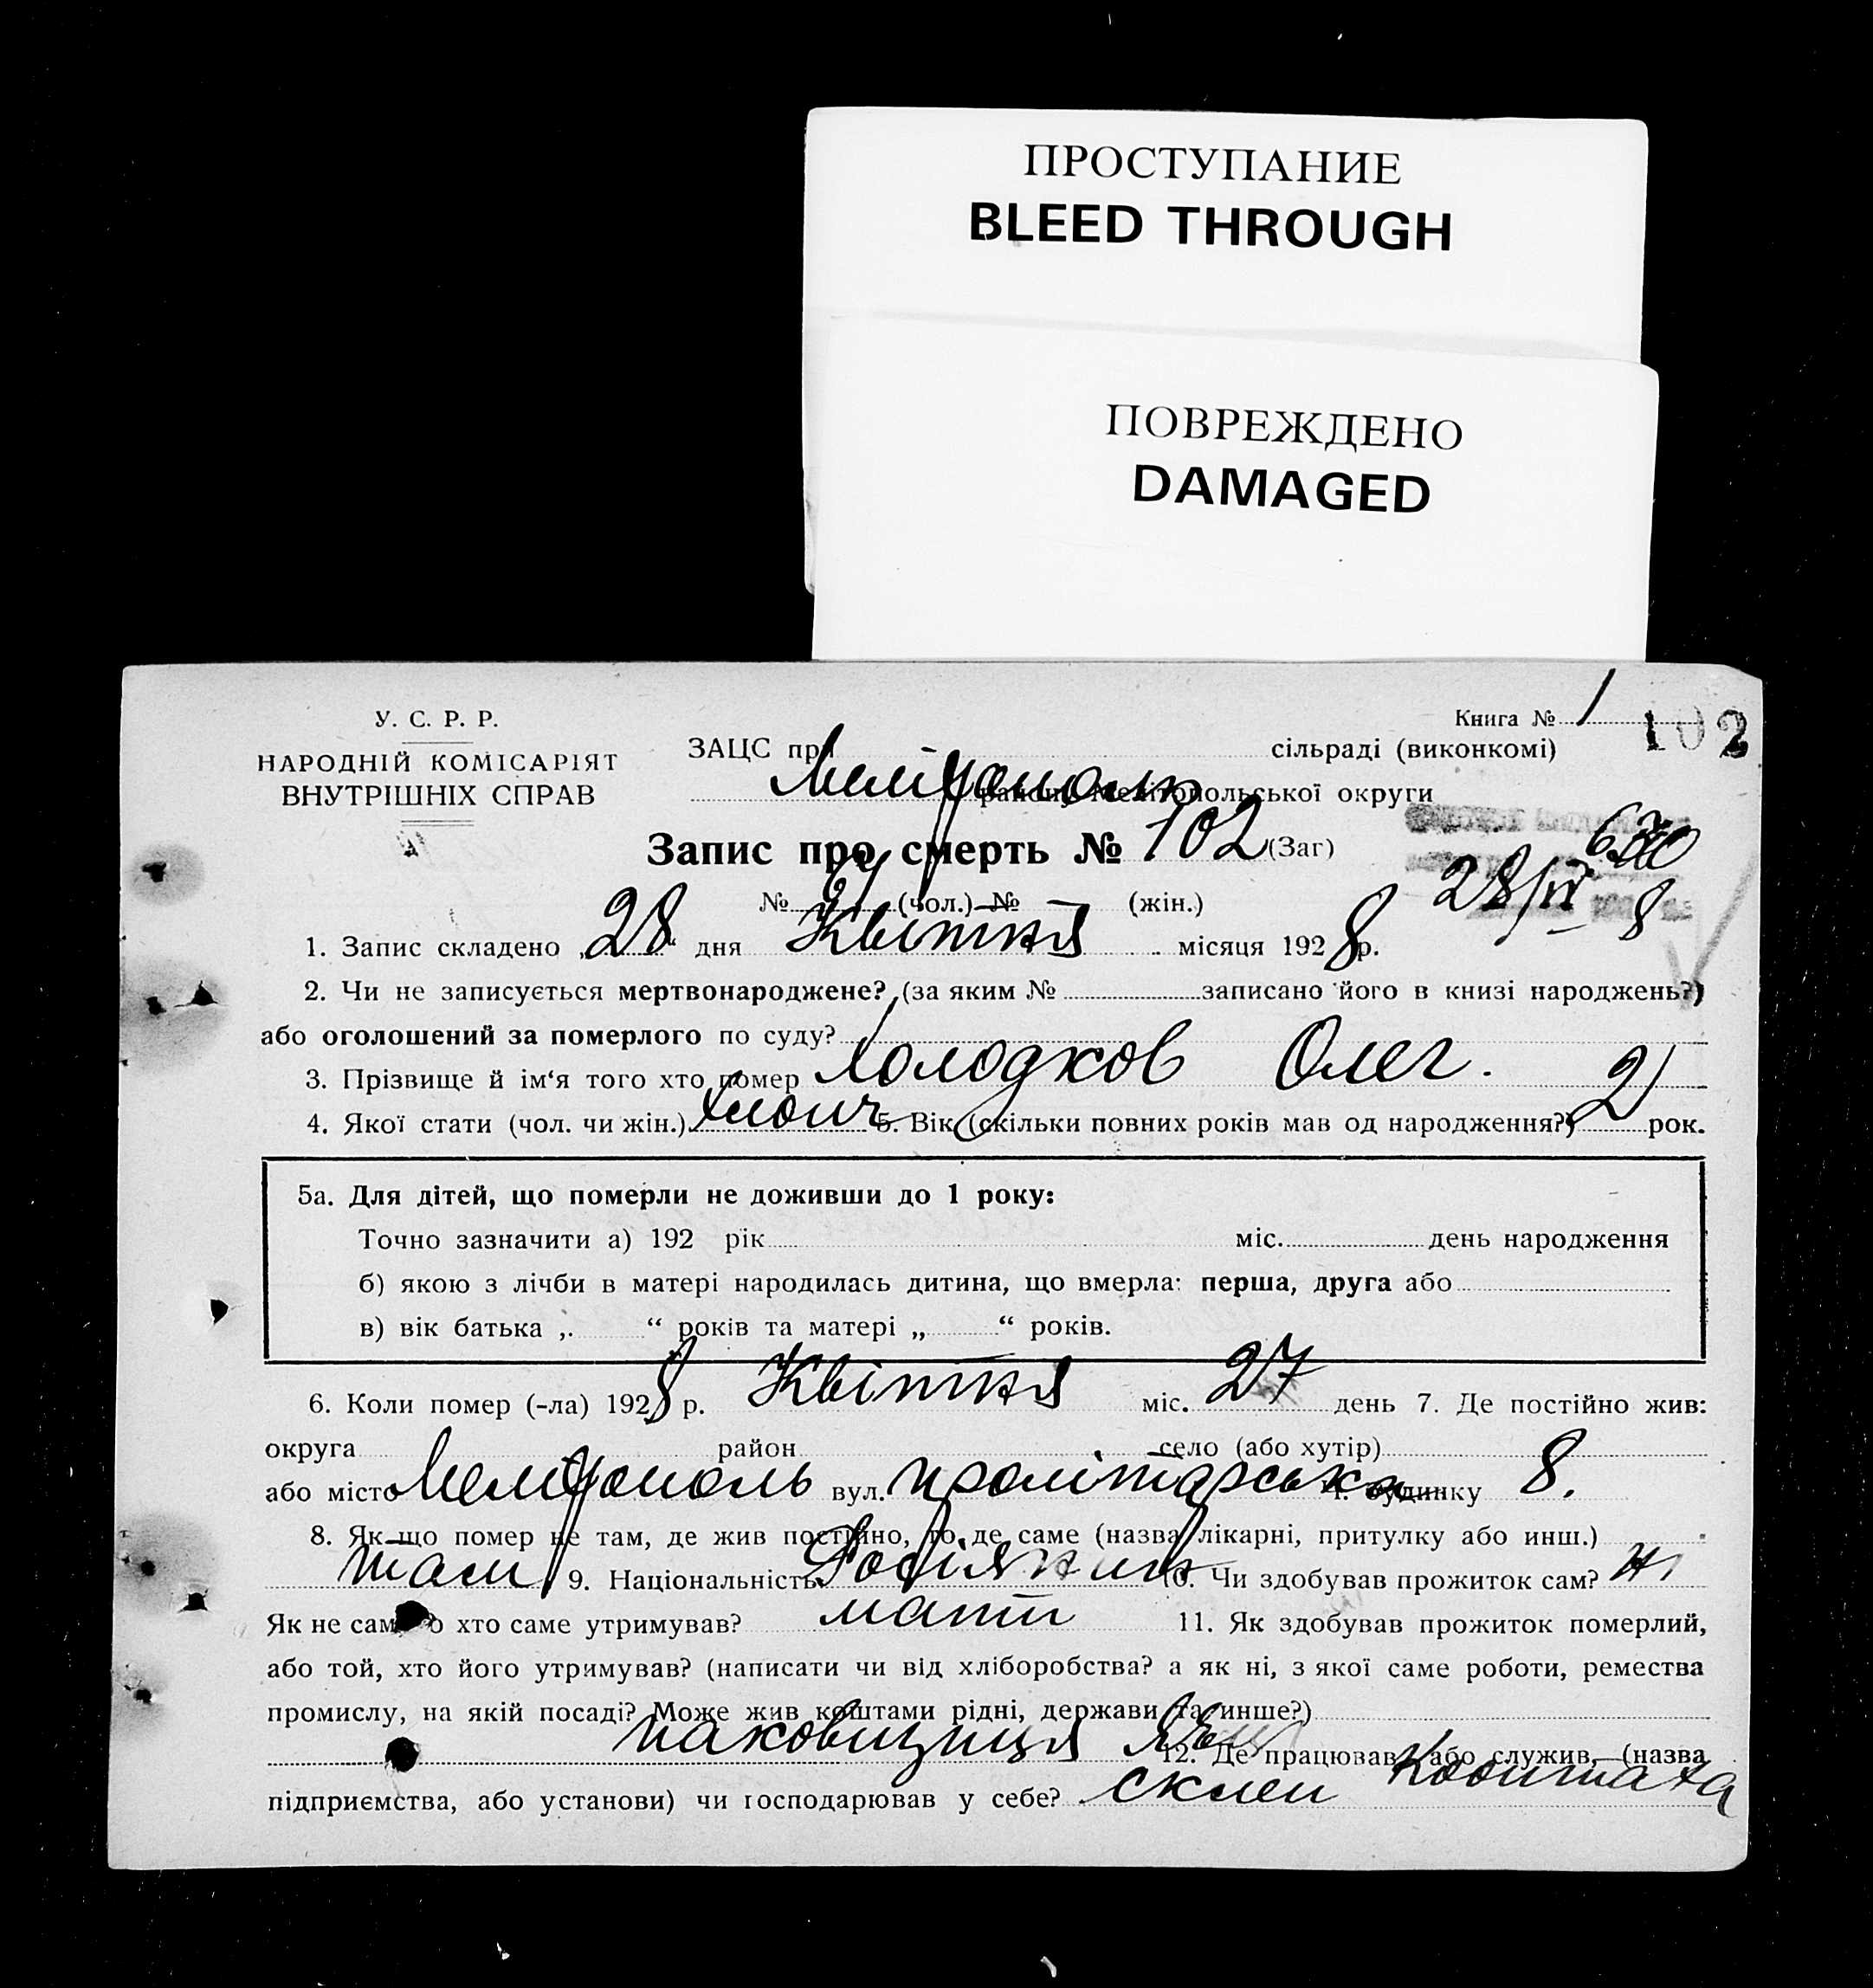 ПРОСТУПАНИЕ
BLEED THROUGH
ПОВРЕЖДЕНО
DAMAGED
У. С. Р. Р.
НАРОДНІЙ КОМІСАРІЯТ
ВНУТРІШНІХ СПРАВ
Книга № 1
102
ЗАЦС при сільраді (виконкомі)
Мелітополь району Мелітопольської округи
Запис про смерть № 102 (Заг)
630
28/IV 8
№ (чол.) № (жін.)
1. Запис складено „28“ дня Квітня місяця 1928 р.
2. Чи не записується мертвонароджене? (за яким № записано його в книзі народжень?)
або оголошений за померлого по суду?
3. Прізвище й ім‘я того хто помер Холодков Олег.
4. Якої стати (чол. чи жін.) хлопч 5. Вік (скільки повних років мав од народження?) 2 рок.
5а. Для дітей, що померли не доживши до 1 року:
Точно зазначити а) 192 рік міс. день народження
б) якою з лічби в матері народилась дитина, що вмерла: перша, друга або
в) вік батька „ “ років та матері „ “ років.
6. Коли помер (-ла) 1928 р. Квітня міс. 27 день 7. Де постійно жив:
округа район село (або хутір)
або місто Мелітополь вул. пролітарська ч. будинку 8.
8. Як-що помер не там, де жив постійно, то де саме (назва лікарні, притулку або инш.)
там 9. Національність Росіянин 10. Чи здобував прожиток сам? ні
Як не сам, то хто саме утримував? мати 11. Як здобував прожиток померлий,
або той, хто його утримував? (написати чи від хліборобства? а як ні, з якої саме роботи, ремества
промислу, на якій посаді? Може жив коштами рідні, держави та инше?)
паковщиця яєц 12. Де працював або служив, (назва
підприємства, або установи) чи господарював у себе? склеп